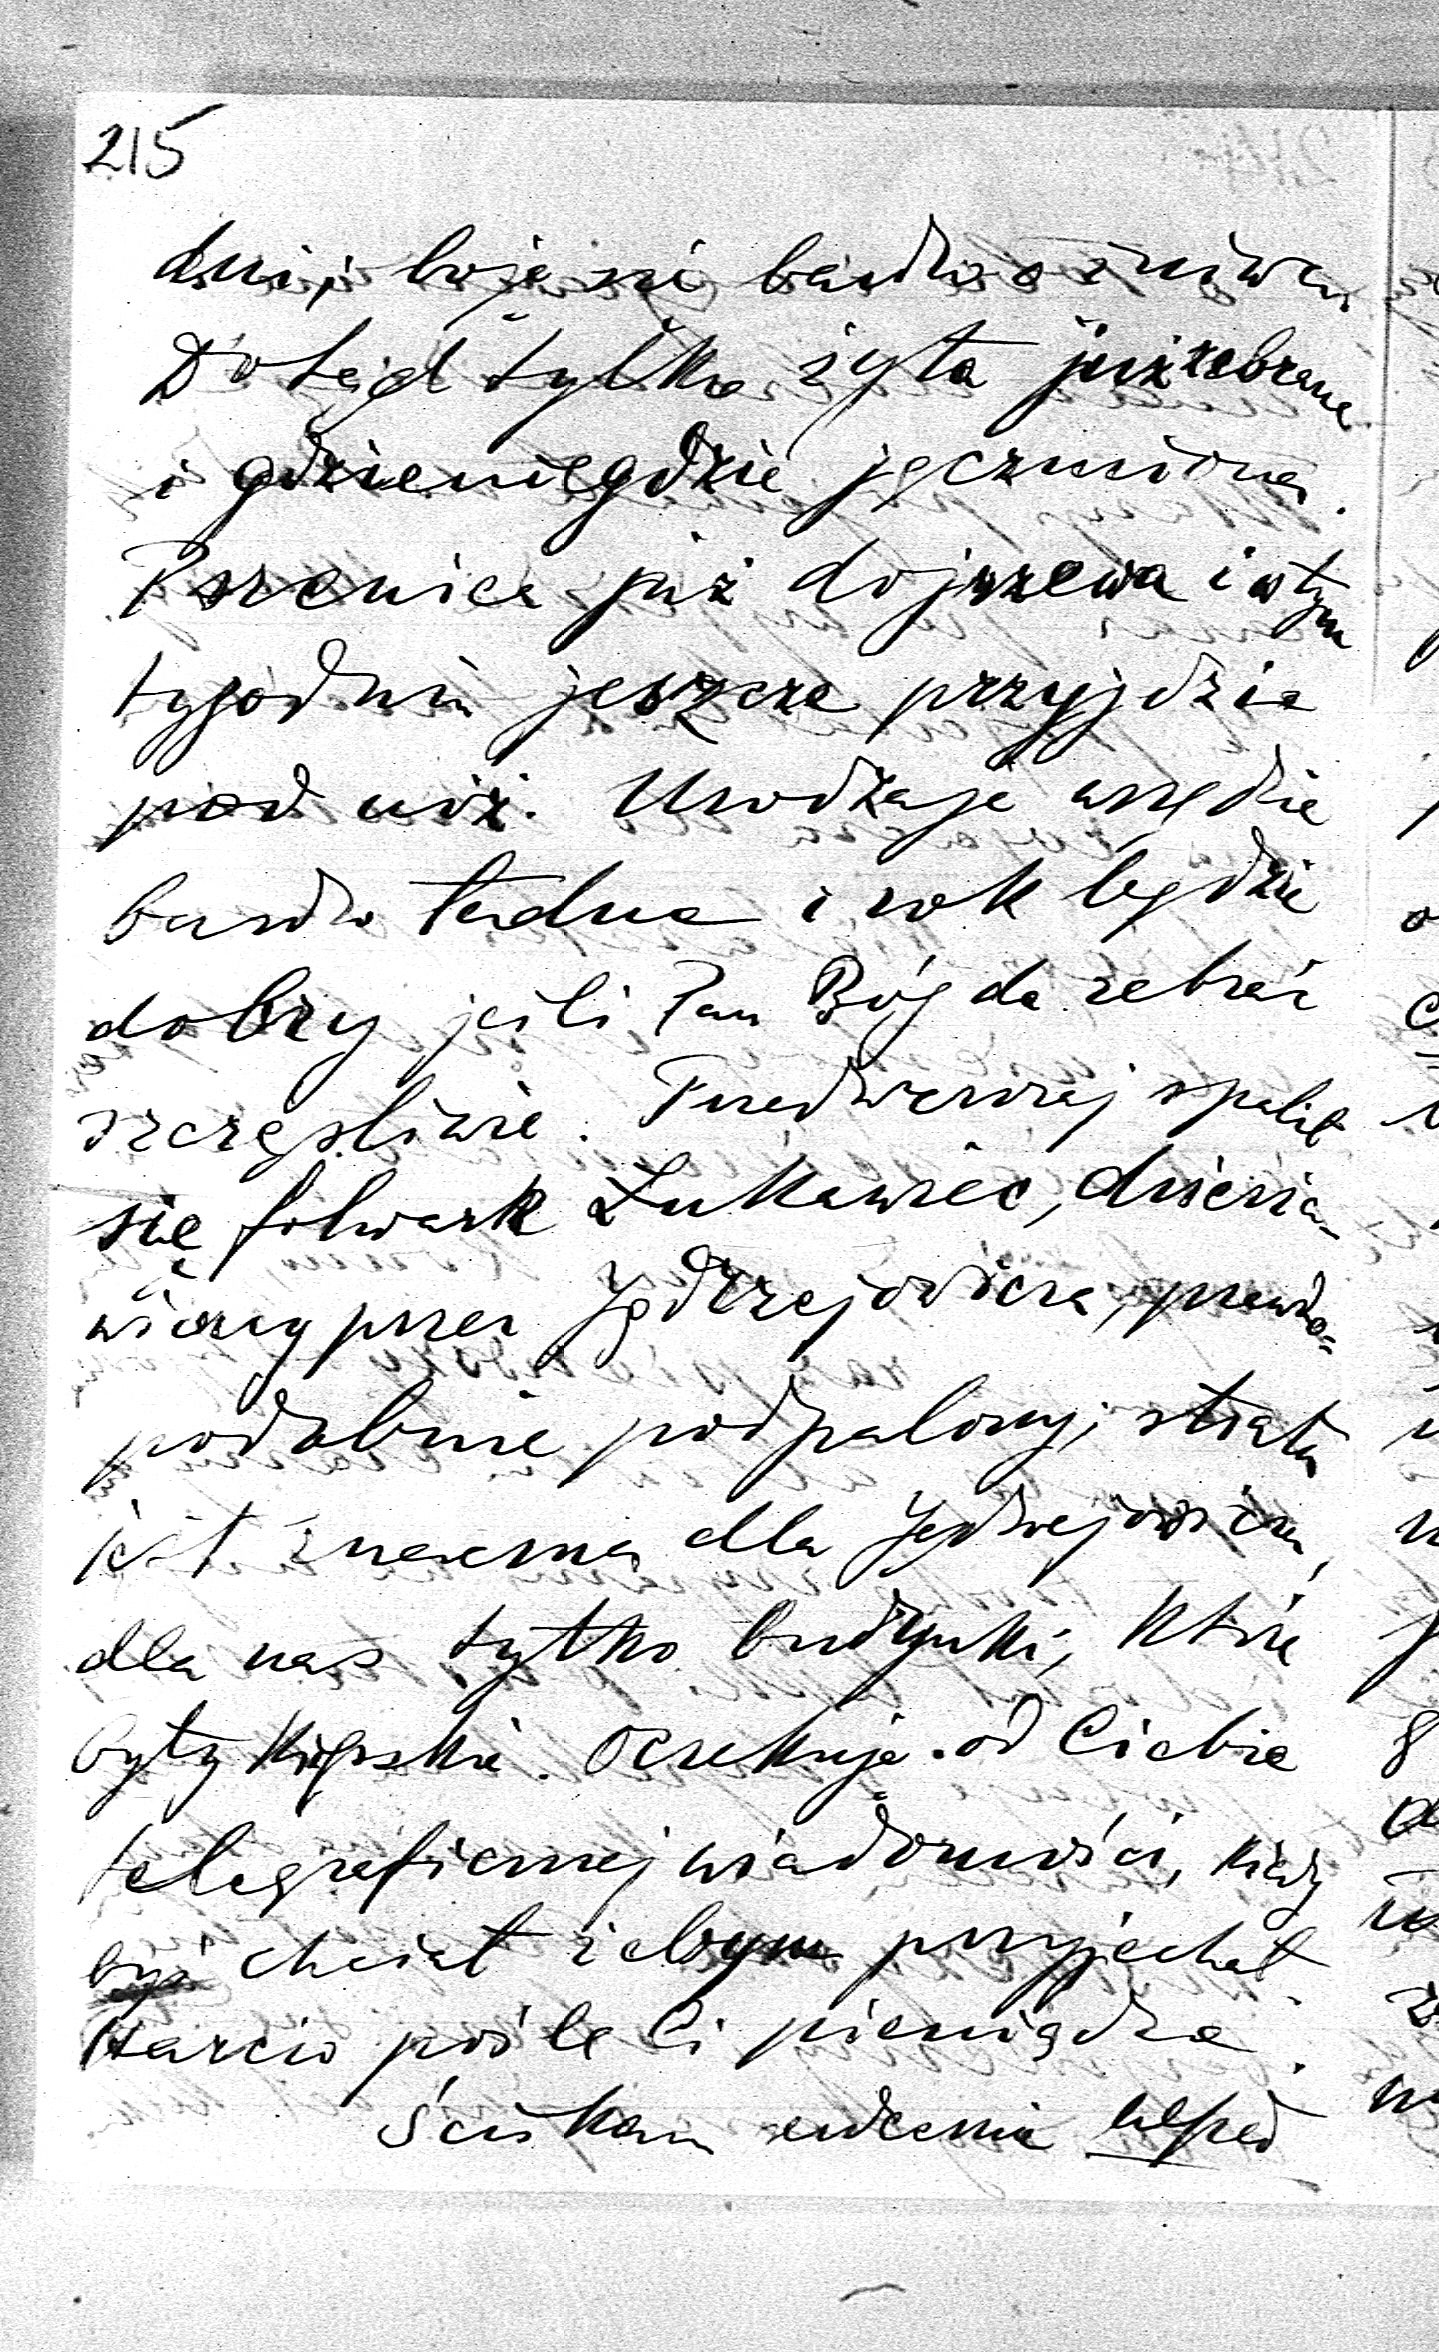 215
dni, boję się bardzo o żniwa.
Dotąd tylko żyta już zebrane
i gdzieniegdzie jęczmiona.
Pszenica już dojrzewa i w tym
tygodniu jeszcze przyjdzie
pod nóż. Urodzaje wszędzie
bardzo ładne i rok będzie
dobry jeśli Pan Bóg da zebrać
szczęśliwie. Przedwczoraj spalił
się folwark Łukawiec, dzierża-
wiony przez Jędrzejowicza, prawdo=
podobnie podpalony; strata
jest znaczna dla Jędrzejowicza,
dla nas tylko budynki, które
były kiepskie. Oczekuję od Ciebie
telegraficznej wiadomości, kiedy
byś chciał żebym przyjechał.
pośle Ci pieniądze.
Ściskam serdecznie Alfred